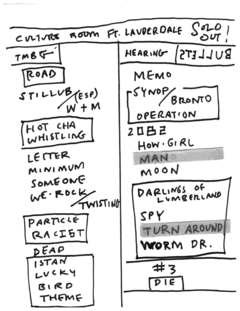 CULTURE ROOM FT. LAUDERDALE SOLD OUT!
TMBG
ROAD
STILLUB (ESP)
W + M
HOT CHA
WHISTLING
LETTER
MINIMUM
SOMEONE
WE·ROCK /
TWISTING
PARTICLE
RACIST
DEAD
ISTAN
LUCKY
BIRD
THEME
HEARING BULLETS
MEMO
SYNOP /
BRONTO
OPERATION
2082
HOW·GIRL
MAN
MOON
DARLINGS OF
LUMBERLAND
SPY
TURN AROUND
WORM DR.
#3
DIE